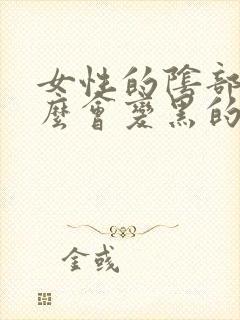 女性的陰部
麼會變黑的
金彧